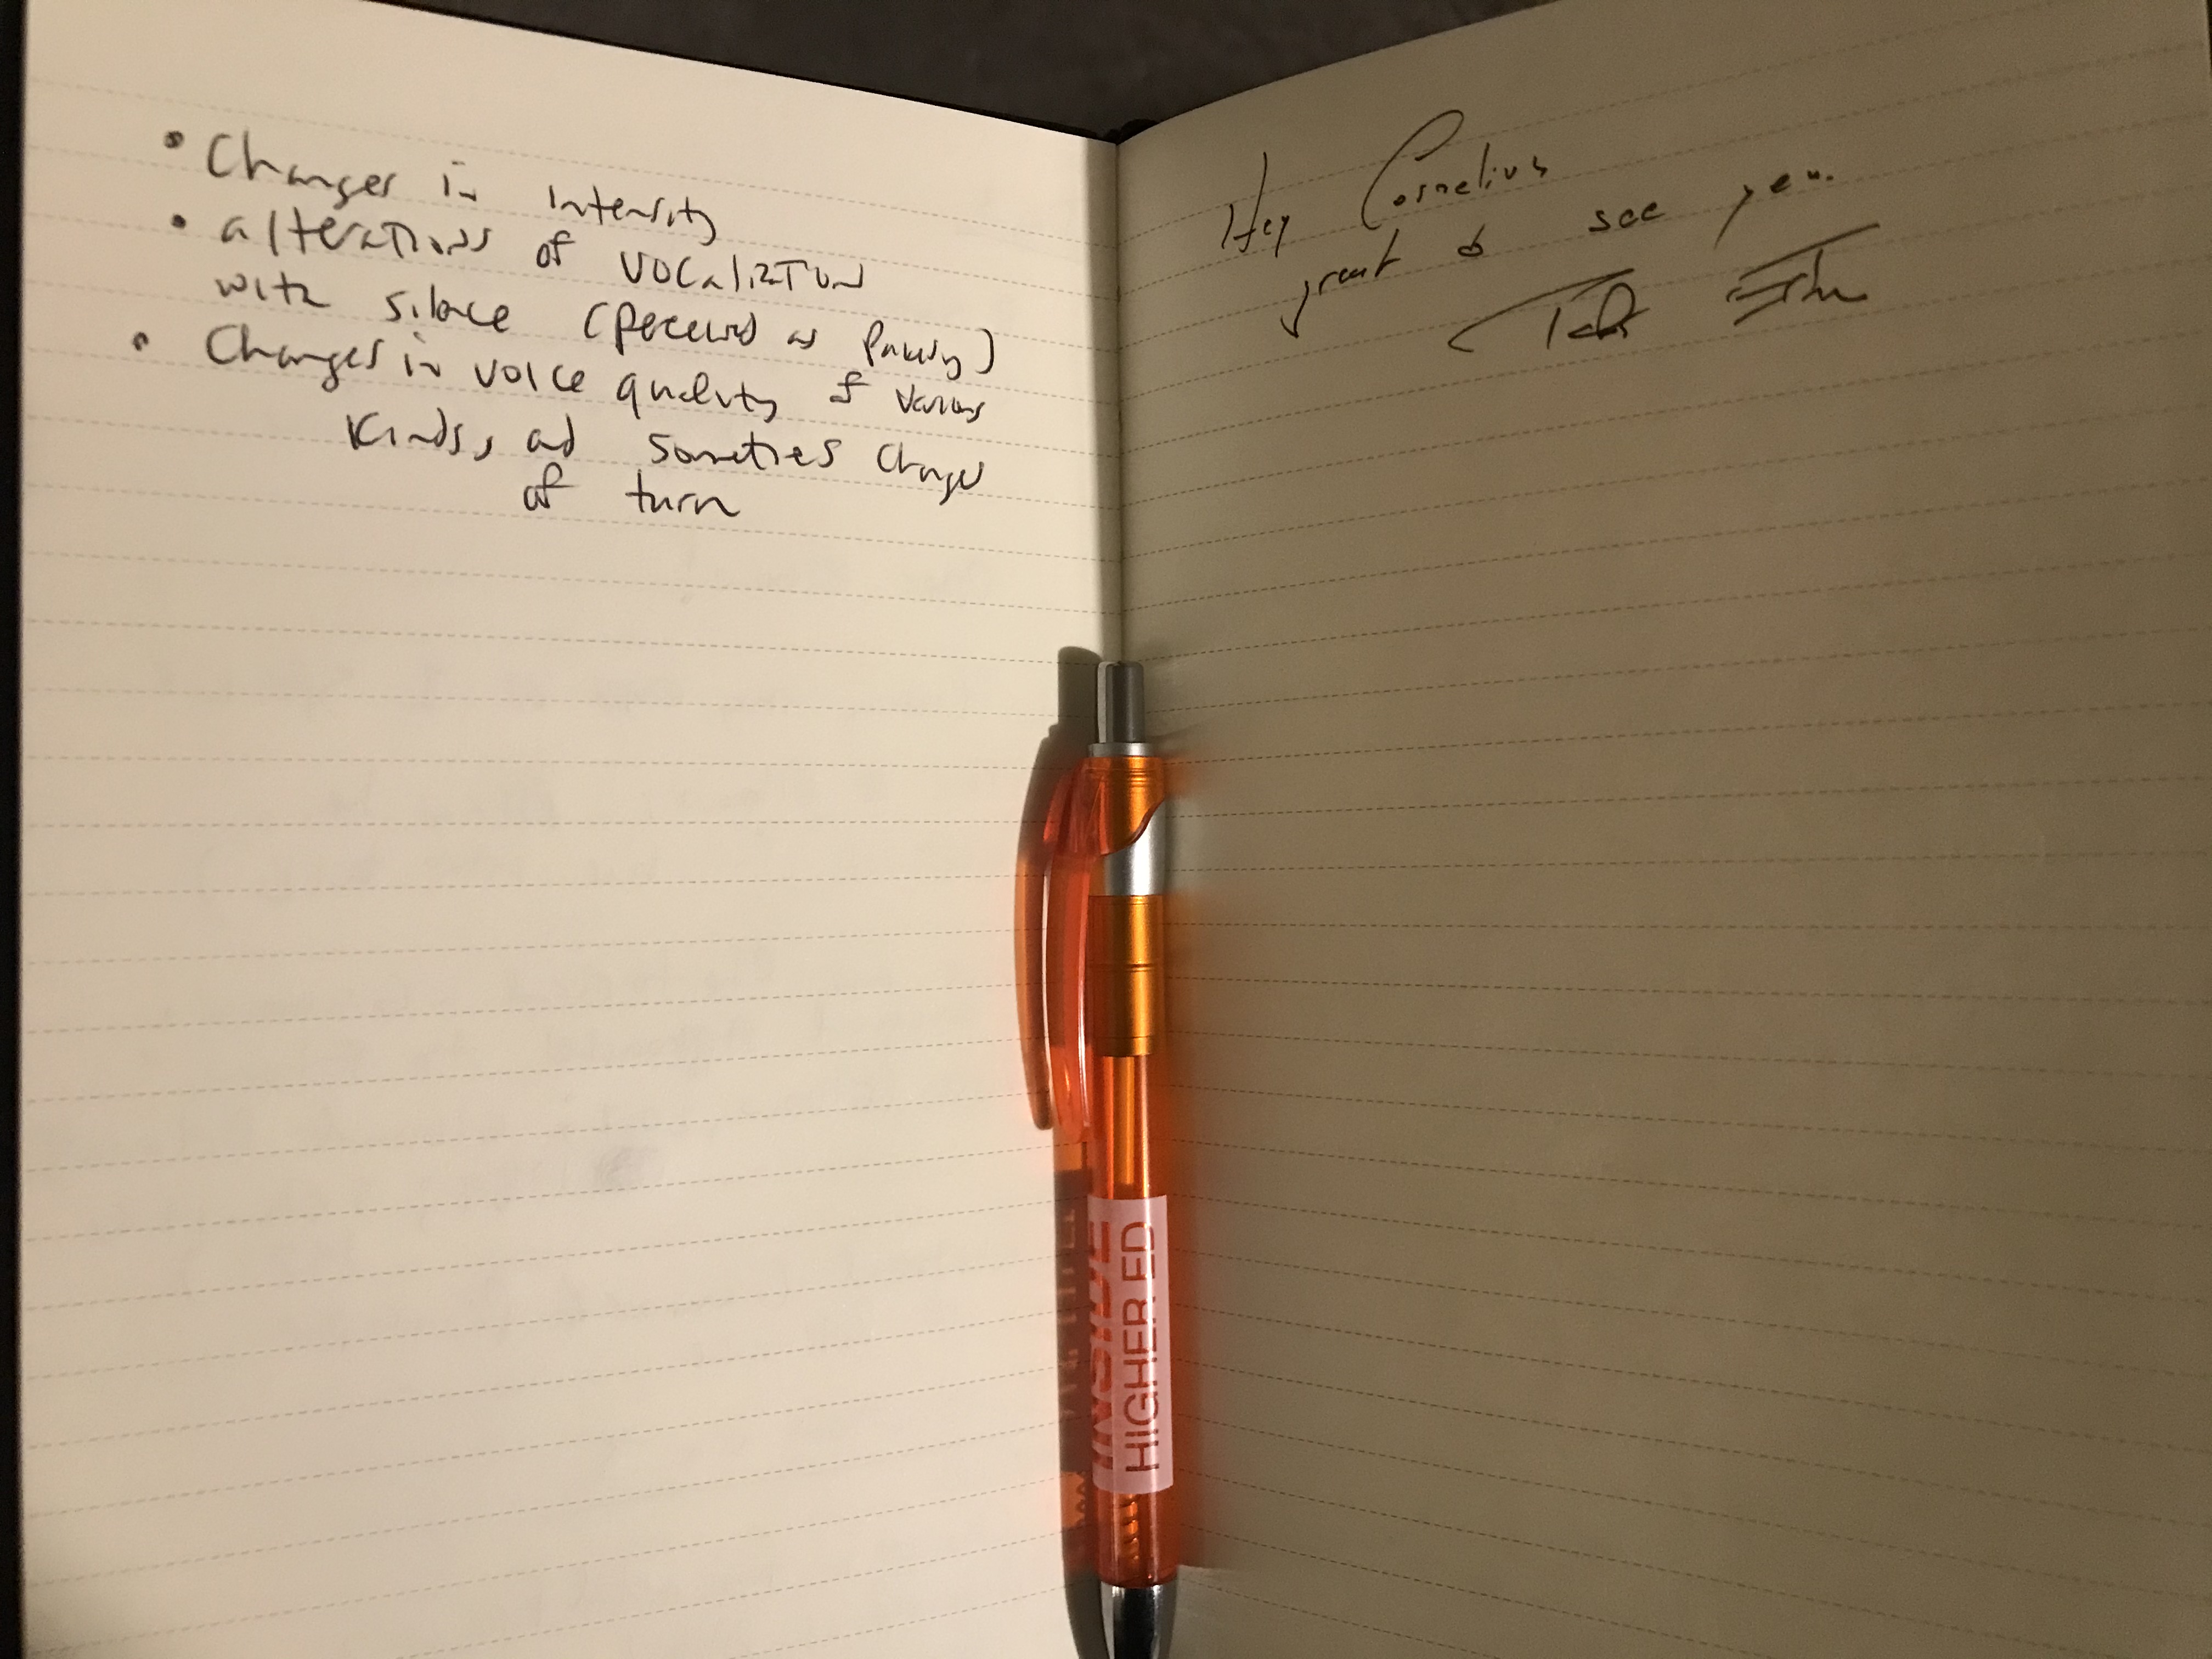 • Changes in intensity
• alterations of vocalization
with silence (perceived as pausing)
• Changes in voice quality of various
kinds, and sometimes changes
of turn
Hey Cornelius
great to see you.
INSIDE
HIGHER ED